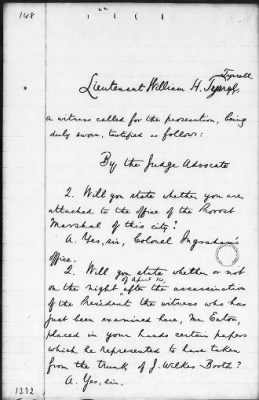 148
Tyrrell
Lieutenant William H. Terry,
a witness called for the prosecution, being
duly sworn, testified as follows:
By the Judge Advocate
Q. Will you state whether you are
attached to the office of the Provost
Marshal of this city?
A. Yes, sir, Colonel Ingraham's
office.
Q. Will you state whether or not
of April 14,
on the night after the assassination
of the President the witness who has
just been examined here, Mr. Eaton,
placed in your hands certain papers
which he represented to have taken
from the trunk of J. Wilkes Booth?
A. Yes, sir.
1232